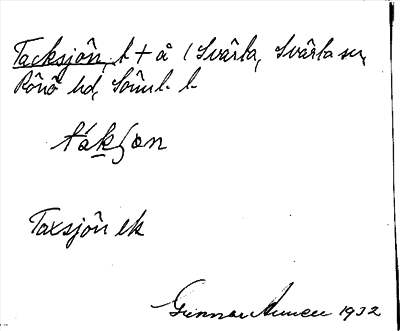 Tacksjön, t + å (Svärta, Svärta sn,
Rönö hd, Söml. l.
tákʃon
Taxsjön ek
Gunnar 1932